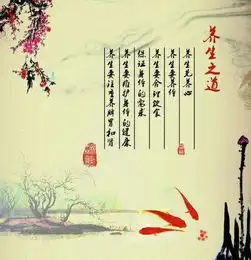 养生之道
养生先养心
养生要养行
养生要合理饮食
保证身体的需求
养生要维护身体的健康
养生要注重养脾胃和肾